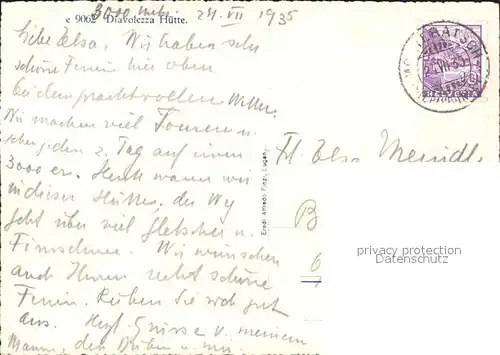 c 9062 Diavolezza Hütte.
3000 mtr. 24. VII 1935
Liebe Elsa, Wir haben sehr
schöne Ferien hier oben
bei dem prachtvollen Wetter.
Wir machen viel Touren u.
jeden 2. Tag auf einen
3000 er. Heute waren wir
in dieser Hütte, der Weg
geht über viel Gletscher u.
Firnschnee. Wir wünschen
auch Ihnen recht schöne
Ferien. Ruhen Sie sich gut
aus. Herzl. Grüsse v. meinem
Mann, den Buben u. mir
Frl. Elsa Meindl
B
6
Eredi Alfredo Finzi, Lugano
privacy protection
Datenschutz